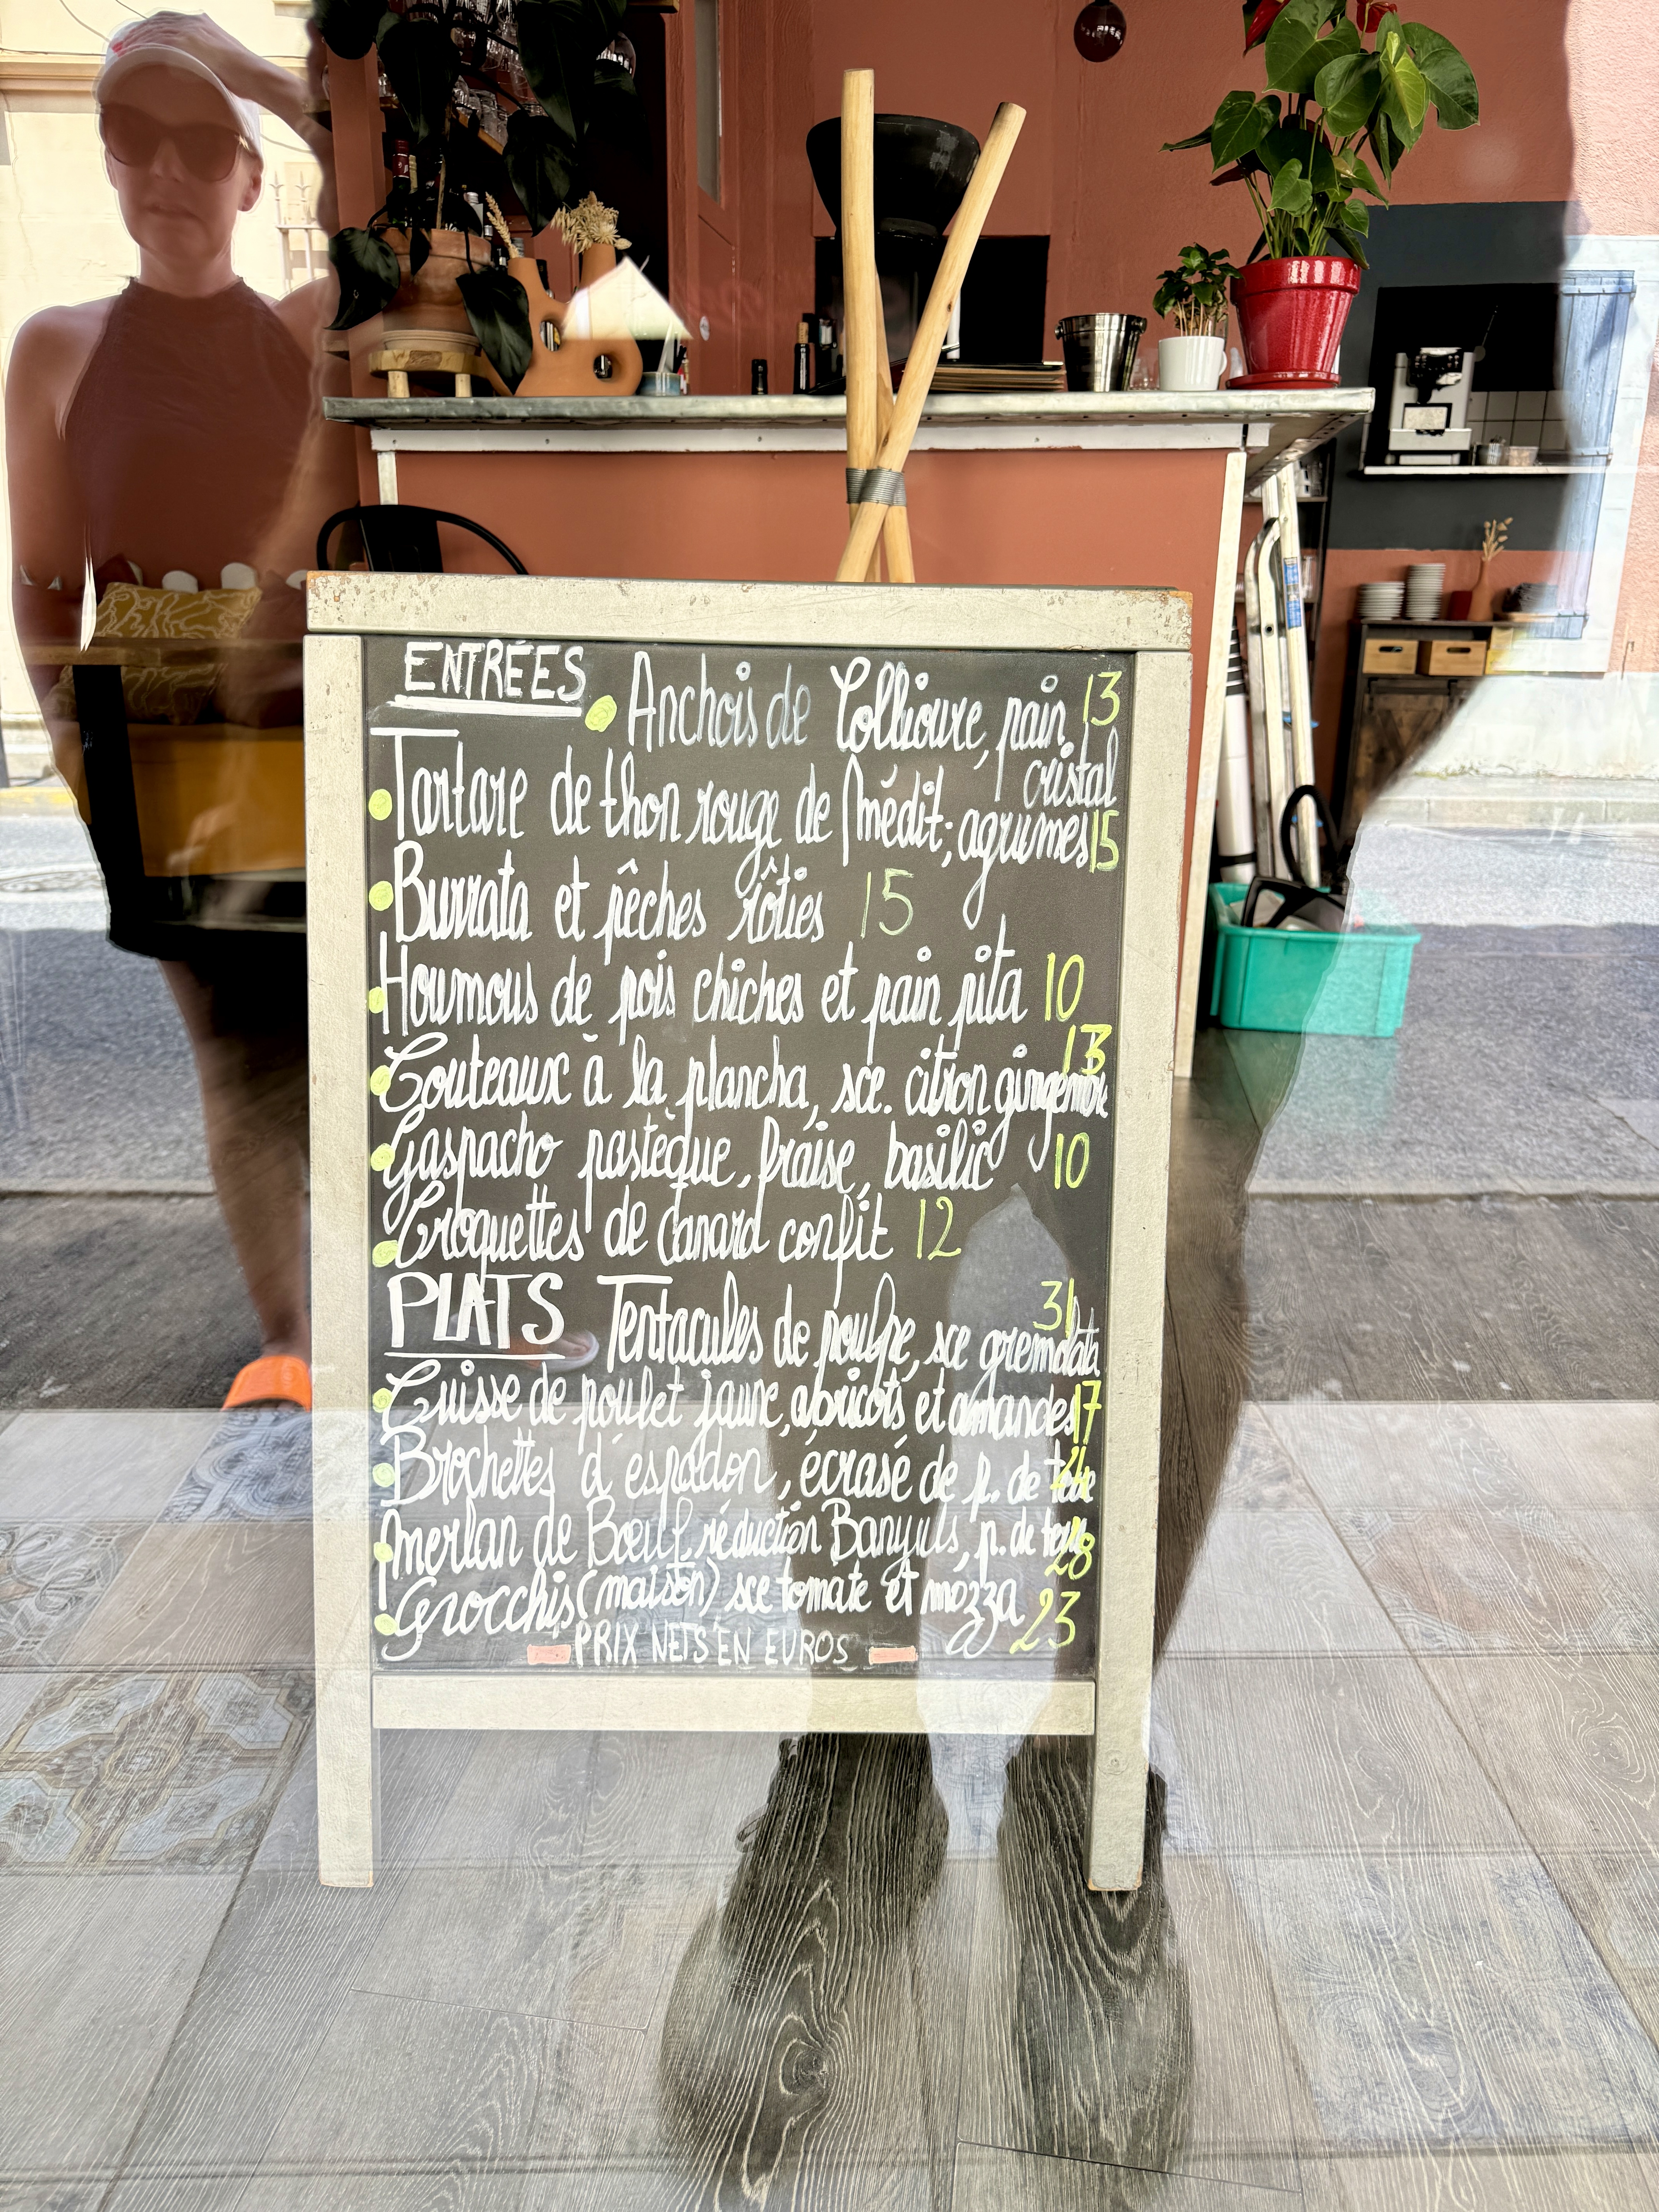 ENTRÉES • Anchois de Collioure, pain 13
cristal
• Tartare de thon rouge de Médit; agrumes 15
• Burrata et pêches rôties 15
• Houmous de pois chiches et pain pita 10
13
• Couteaux à la plancha, sce. citron gingembre
• Gaspacho pastèque, fraise, basilic 10
• Croquettes de canard confit 12
PLATS Tentacules de poulpe, sce gremolata 31
• Cuisse de poulet jaune, abricots et amandes 17
• Brochettes d'espadon, écrasé de p. de terre 24
• merlan de Bœuf, réduction Banyuls, p. de terre 28
• Gnocchis (maison) sce tomate et mozza 23
PRIX NETS EN EUROS